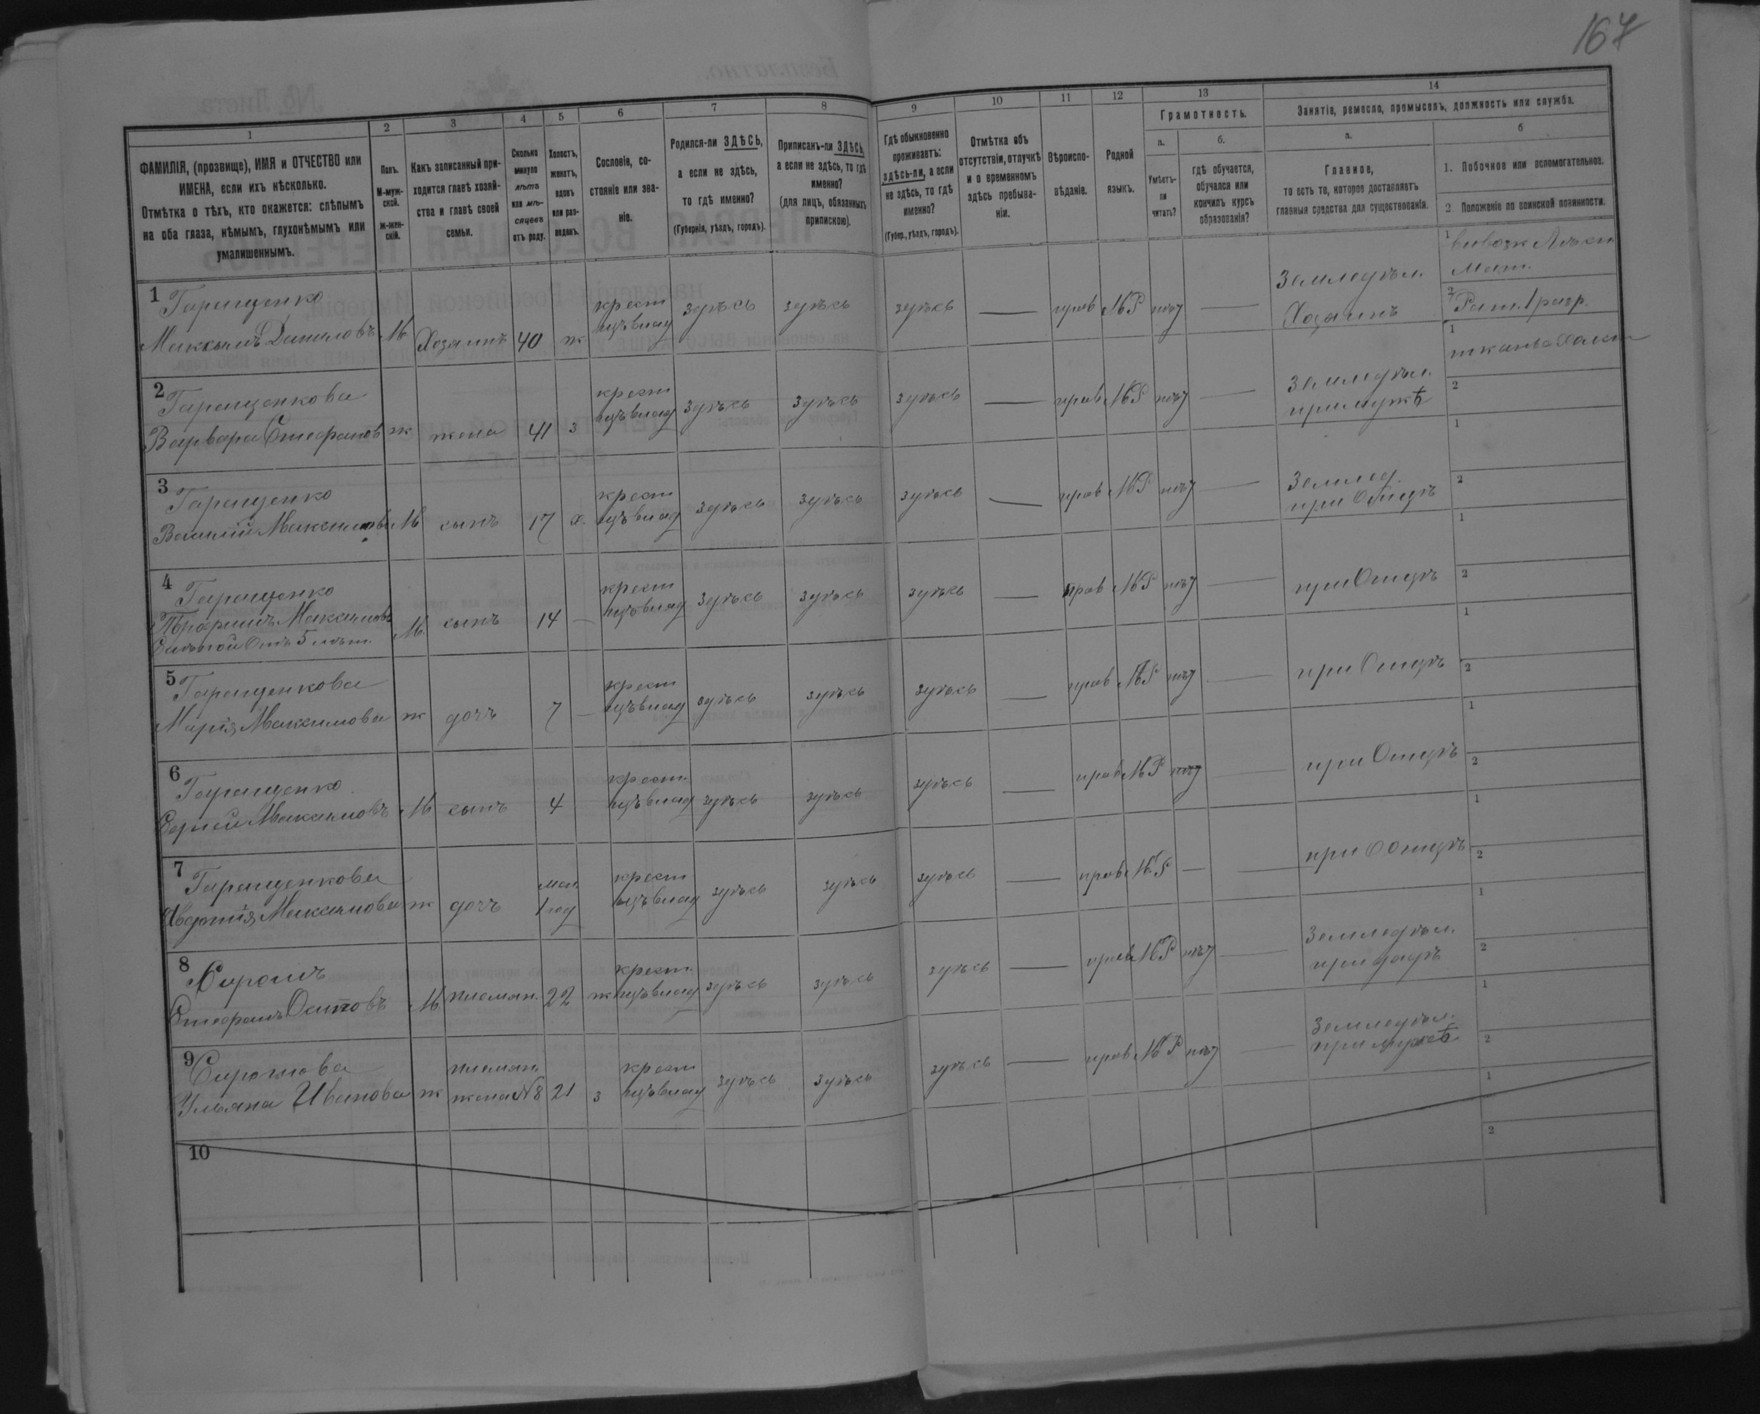 167
1
2
3
4
5
6
7
8
9
10
11
12
13
14
ФАМИЛІЯ, (прозвище), ИМЯ и ОТЧЕСТВО или
ИМЕНА, если ихъ нѣсколько.
Отмѣтка о тѣхъ, кто окажется: слѣпымъ
на оба глаза, нѣмымъ, глухонѣмымъ или
умалишеннымъ.
Полъ.
М-муж-
ской.
Ж-жен-
скій.
Какъ записанный при-
ходится главѣ хозяй-
ства и главѣ своей
семьи.
Сколько
минуло
лѣтъ
или мѣ-
сяцевъ
отъ роду.
Холостъ,
женатъ,
вдовъ
или раз-
веденъ.
Сословіе, со-
стояніе или зва-
ніе.
Родился-ли ЗДѢСЬ,
а если не здѣсь,
то гдѣ именно?
(Губернія, уѣздъ, городъ).
Приписанъ-ли ЗДѢСЬ,
а если не здѣсь, то гдѣ
именно?
(для лицъ, обязанныхъ
припискою).
Гдѣ обыкновенно
проживаетъ:
здѣсь-ли, а если
не здѣсь, то гдѣ
именно?
(Губер., уѣздъ, городъ).
Отмѣтка объ
отсутствіи, отлучкѣ
и о временномъ
здѣсь пребыва-
ніи.
Вѣроиспо-
вѣданіе.
Родной
языкъ.
Грамотность.
а.
Умѣетъ-
ли
читать?
б.
гдѣ обучается,
обучался или
кончилъ курсъ
образованія?
Занятіе, ремесло, промыселъ, должность или служба.
а.
Главное,
то есть то, которое доставляетъ
главныя средства для существованія.
б
1. Побочное или вспомогательное.
2 Положеніе по воинской повинности.
1 Гаращенко
Максимъ Даниловъ М Хозяинъ 40 ж крест здѣсь здѣсь здѣсь — прав МР нѣт — Земледѣл.
Хозяинъ
2 Рат. 1 разр.
2 Гаращенкова
Варвара Стефанов ж жена 41 з крест здѣсь здѣсь здѣсь — прав МР нѣт — Земледѣл.
при мужѣ
3 Гаращенко
Василій Максимовъ М сынъ 17 х. крест здѣсь здѣсь здѣсь — прав МР нѣт — Землед.
при Отцѣ
4 Гаращенко
Максимовъ М сынъ 14 — крест здѣсь здѣсь здѣсь — прав МР нѣт — при Отцѣ
Слѣпой Отъ 5 лѣт.
5 Гаращенкова
Марія Максимова ж дочь 7 — крест здѣсь здѣсь здѣсь — прав МР нѣт — при Отцѣ
6 Гаращенко
Сергѣй Максимовъ М сынъ 4 крест здѣсь здѣсь здѣсь — прав МР нѣт — при Отцѣ
7 Гаращенкова
Максимова ж дочь 1 год крест здѣсь здѣсь здѣсь — прав МР — — при Отцѣ
8 Сиромъ
Стефанъ Осиповъ М племян. 22 ж крест здѣсь здѣсь здѣсь — прав МР нѣт — Земледѣл.
при дядѣ
9 Сиромова
Ульяна Иванова ж племян. жена №8 21 з крест здѣсь здѣсь здѣсь — прав МР нѣт — Земледѣл.
при мужѣ
10